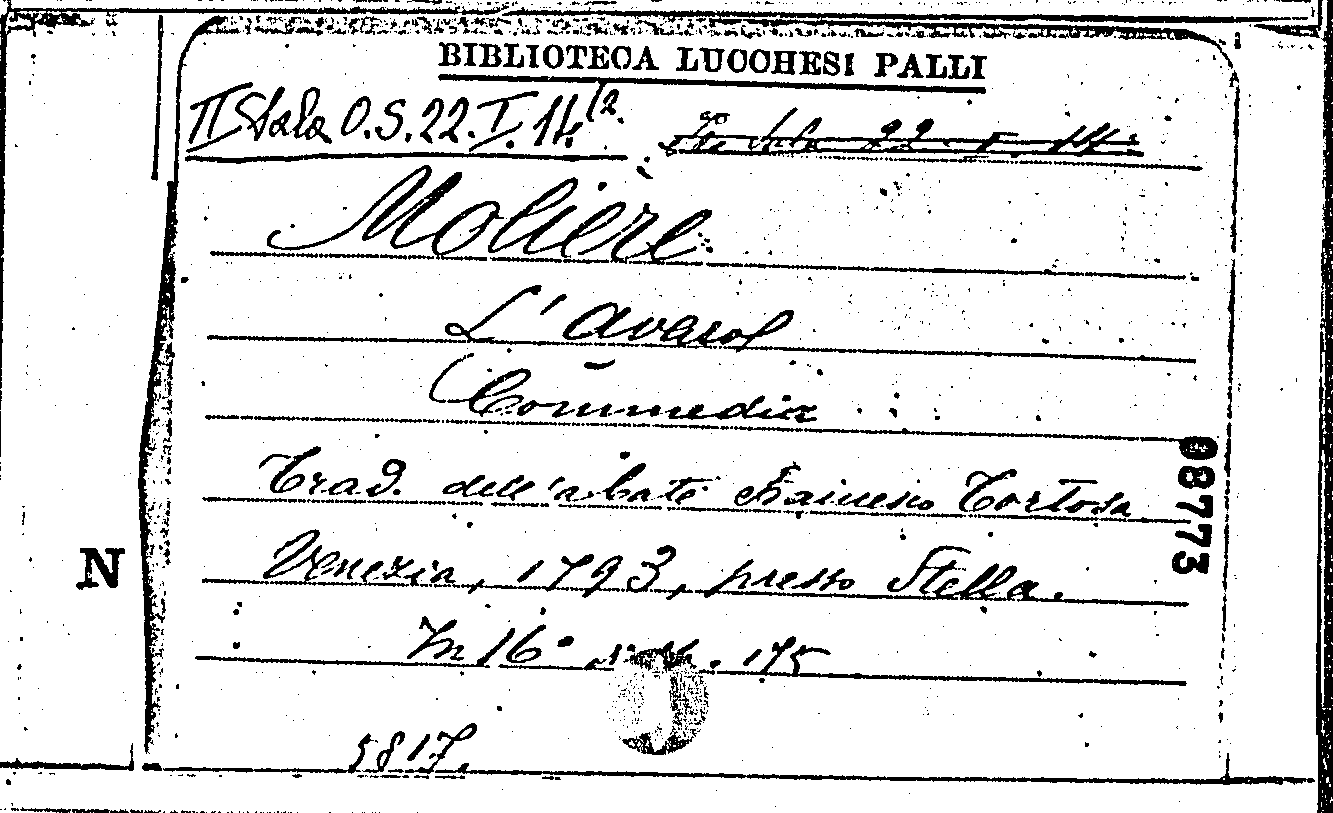 BIBLIOTECA LUCCHESI PALLI
II Sala O.S.22.I.14.12.
22. I. 14.
Molière
L'Avaro
Commedia
Trad. dell'abate Francesco Tortosa
Venezia, 1793, presso Stella.
In 16° . 175
5817.
N
08773